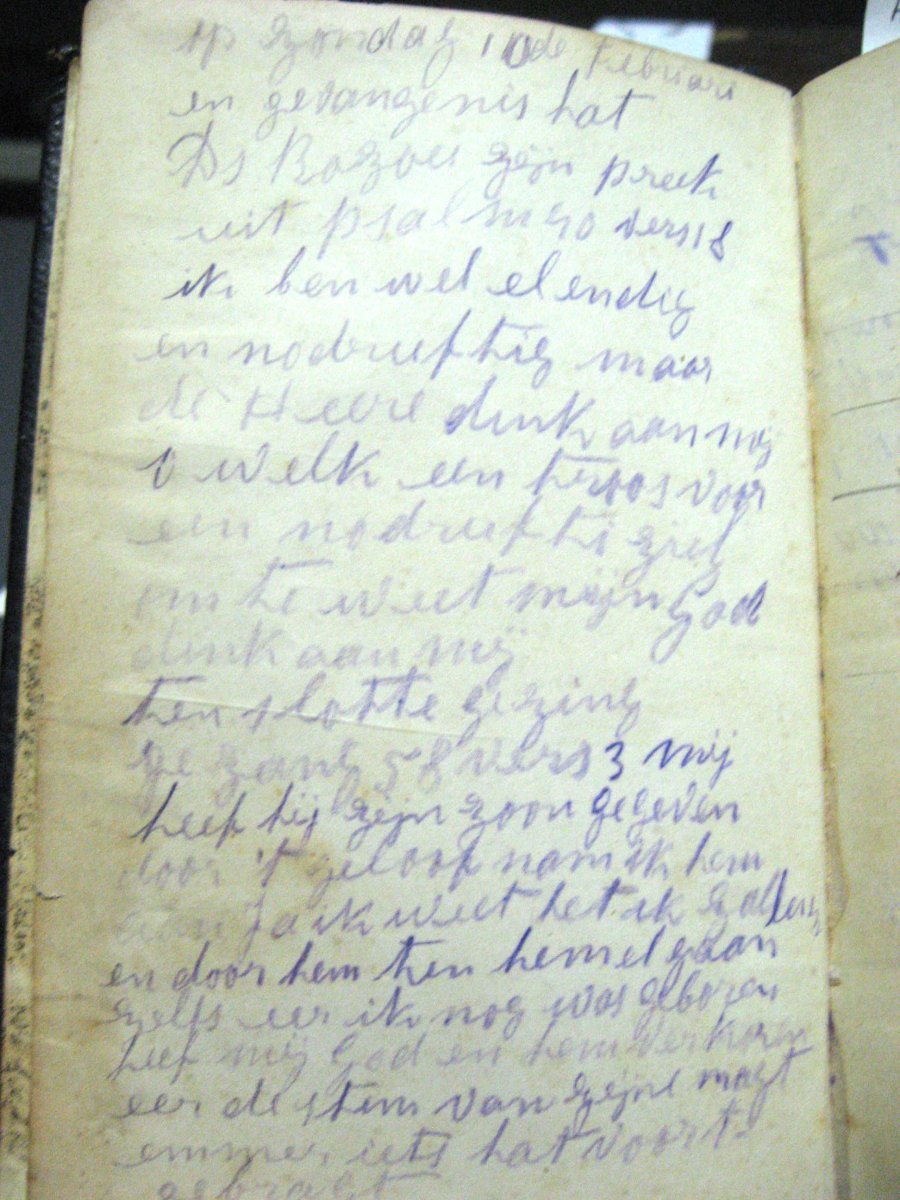 op zondag 10de Februari
en gevangenis hat
Ds Bozoe zijn preek
uit psalm 40 vers 18
ik ben wel elendig
en nodrueftig maar
de Heere dink aan mij
o welk een troos voor
een nodruefti ziel
om te weet mijn God
dink aan mij
ten slotte gezing
gezang 58 vers 3 mij
heef hij zijn zoon gegeven
door 't geloof nam ik hem
aan ja ik weet het ik zal leven
en door hem ten hemel gaan
zelfs eer ik nog was geboren
heef mij God en hem verkoren
eer de stem van zijne magt
emmer iets hat voort
gebragt